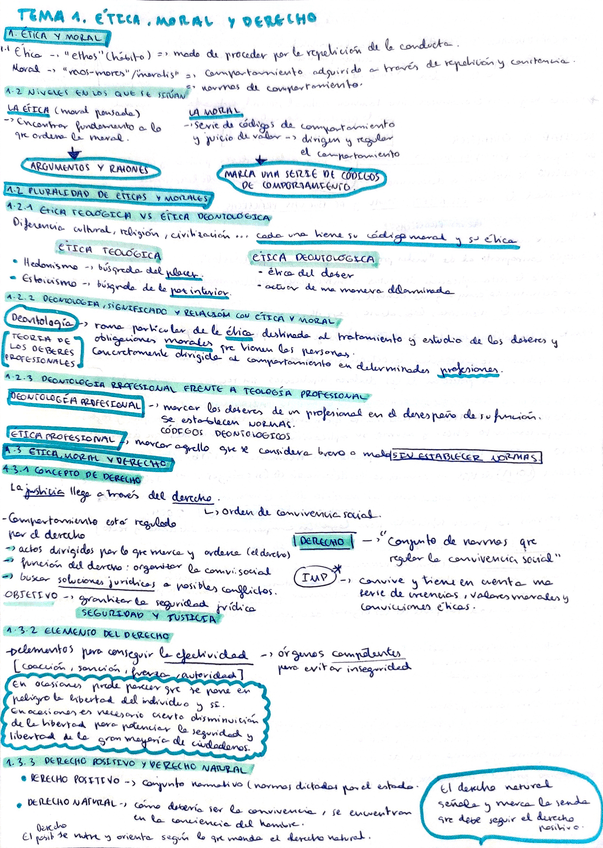 TEMA 1. ÉTICA, MORAL Y DERECHO
1. ÉTICA Y MORAL
1.1 Ética -> "ethos" (hábito) => modo de proceder por la repetición de la conducta.
Moral -> "mos-mores"/"moralis" => comportamiento adquirido a través de repetición y conciencia.
normas de comportamiento.
1.2 NIVELES EN LOS QUE SE SITÚAN
LA ÉTICA (moral pensada)
-> Encontrar fundamento a lo
que ordena la moral.
ARGUMENTOS Y RAZONES
LA MORAL
-> Serie de códigos de comportamiento
y juicio de valor -> dirigen y regulan
el comportamiento
MARCA UNA SERIE DE CÓDIGOS
DE COMPORTAMIENTO.
1.2 PLURALIDAD DE ÉTICAS Y MORALES
1.2.1 ÉTICA TEOLÓGICA VS ÉTICA DEONTOLOGICA
Diferencia cultural, religión, civilización ... cada una tiene su código moral y su ética
ÉTICA TEOLÓGICA
• Hedonismo -> búsqueda del placer.
• Estoicismo -> búsqueda de la paz interior.
ÉTICA DEONTOLOGICA
- ética del deber
- actuar de una manera determinada
1.2.2 DEONTOLOGIA, SIGNIFICADO Y RELACIÓN CON ÉTICA Y MORAL
Deontología -> rama particular de la ética destinada al tratamiento y estudio de los deberes y
obligaciones morales que tienen las personas.
Concretamente dirigida al comportamiento en determinadas profesiones.
[TEORIA DE
LOS DEBERES
PROFESIONALES]
1.2.3 DEONTOLOGIA PROFESIONAL FRENTE A TEOLOGÍA PROFESIONAL
DEONTOLOGÍA PROFESIONAL -> marcar los deberes de un profesional en el desempeño de su función.
Se establecen NORMAS.
CÓDIGOS DEONTOLOGICOS
ETICA PROFESIONAL -> marcar aquello que se considera bueno o malo SIN ESTABLECER NORMAS
1.3 ÉTICA, MORAL Y DERECHO
1.3.1 CONCEPTO DE DERECHO
La justicia llega a través del derecho.
↳ Orden de convivencia social.
- Comportamiento está regulado
por el derecho
-> actos dirigidos por lo que marca y ordena (el derecho)
-> función del derecho: organizar la conv. social
-> buscar soluciones jurídicas a posibles conflictos.
OBJETIVO -> garantizar la seguridad jurídica
SEGURIDAD Y JUSTICIA
DERECHO -> "Conjunto de normas que
regulan la convivencia social"
IMP* -> Convive y tiene en cuenta una
serie de creencias, valores morales y
convicciones éticas.
1.3.2 ELEMENTO DEL DERECHO
-> elementos para conseguir la efectividad -> órganos competentes
[coacción, sanción, fuerza, autoridad] para evitar inseguridad
En ocasiones puede parecer que se pone en
peligro la libertad del individuo y sí.
En ocasiones es necesario cierta disminución
de la libertad para potenciar la seguridad y
libertad de la gran mayoría de ciudadanos.
1.3.3 DERECHO POSITIVO Y DERECHO NATURAL
• DERECHO POSITIVO -> conjunto normativo (normas dictadas por el estado.
• DERECHO NATURAL -> cómo debería ser la convivencia, se encuentran
en la conciencia del hombre.
Derecho
El posit se nutre y orienta según lo que manda el derecho natural.
El derecho natural
señala y marca la senda
que debe seguir el derecho
positivo.